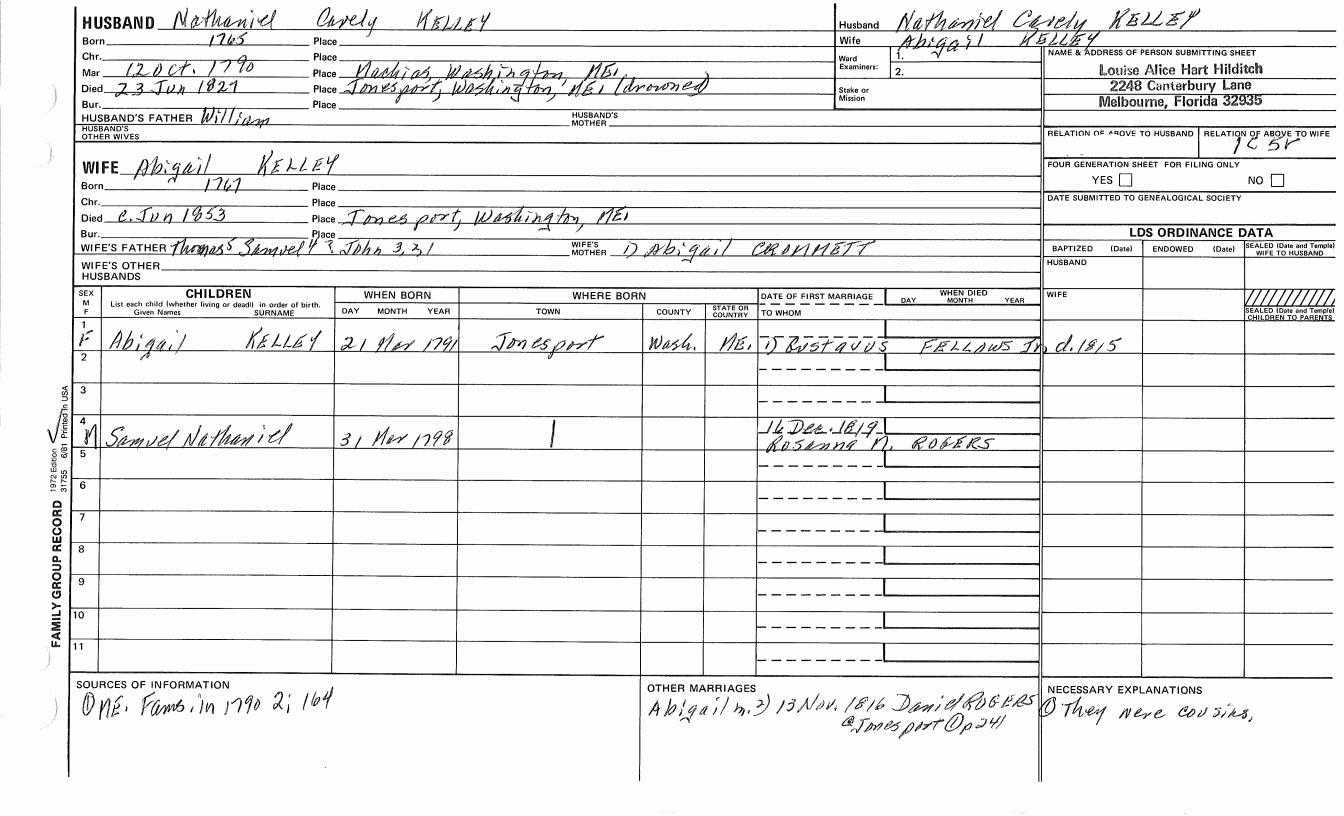 HUSBAND Nathaniel Carely KELLEY
Born 1765 Place
Chr. Place
Mar 12 Oct. 1790 Place Machias, Washington, ME.
Died 23 Jun 1827 Place Jonesport, Washington, ME. (drowned)
Bur. Place
HUSBAND'S FATHER William HUSBAND'S MOTHER
HUSBAND'S OTHER WIVES
Husband Nathaniel Carely KELLEY
Wife Abigail KELLEY
Ward Examiners: 1.
2.
Stake or Mission
NAME & ADDRESS OF PERSON SUBMITTING SHEET
Louise Alice Hart Hilditch
2248 Canterbury Lane
Melbourne, Florida 32935
RELATION OF ABOVE TO HUSBAND RELATION OF ABOVE TO WIFE
1C 5r
FOUR GENERATION SHEET FOR FILING ONLY
YES NO
DATE SUBMITTED TO GENEALOGICAL SOCIETY
WIFE Abigail KELLEY
Born 1767 Place
Chr. Place
Died c. Jun 1853 Place Jonesport, Washington, ME.
Bur. Place
WIFE'S FATHER Thomas5 Samuel4 ? John 3,2,1 WIFE'S MOTHER 1) Abigail CROMMETT
WIFE'S OTHER HUSBANDS
LDS ORDINANCE DATA
BAPTIZED (Date) ENDOWED (Date) SEALED (Date and Temple) WIFE TO HUSBAND
HUSBAND
WIFE
SEALED (Date and Temple) CHILDREN TO PARENTS
SEX M F
CHILDREN
List each child (whether living or dead) in order of birth.
Given Names SURNAME
WHEN BORN
DAY MONTH YEAR
WHERE BORN
TOWN COUNTY STATE OR COUNTRY
DATE OF FIRST MARRIAGE
TO WHOM
WHEN DIED
DAY MONTH YEAR
1 F Abigail KELLEY 21 Mar 1791 Jonesport Wash. ME. 1) Gustavus FELLOWS Jr. d. 1815
2
3
4 M Samuel Nathaniel 31 Mar 1798 16 Dec. 1819
Rosanna N. ROGERS
5
6
7
8
9
10
11
FAMILY GROUP RECORD 1972 Edition 31755 6/81 Printed in USA
SOURCES OF INFORMATION
① ME. Fams. in 1790 2; 164
OTHER MARRIAGES
Abigail m. 2) 13 Nov. 1816 Daniel ROGERS
@ Jonesport ① p 241
NECESSARY EXPLANATIONS
① They were cousins.